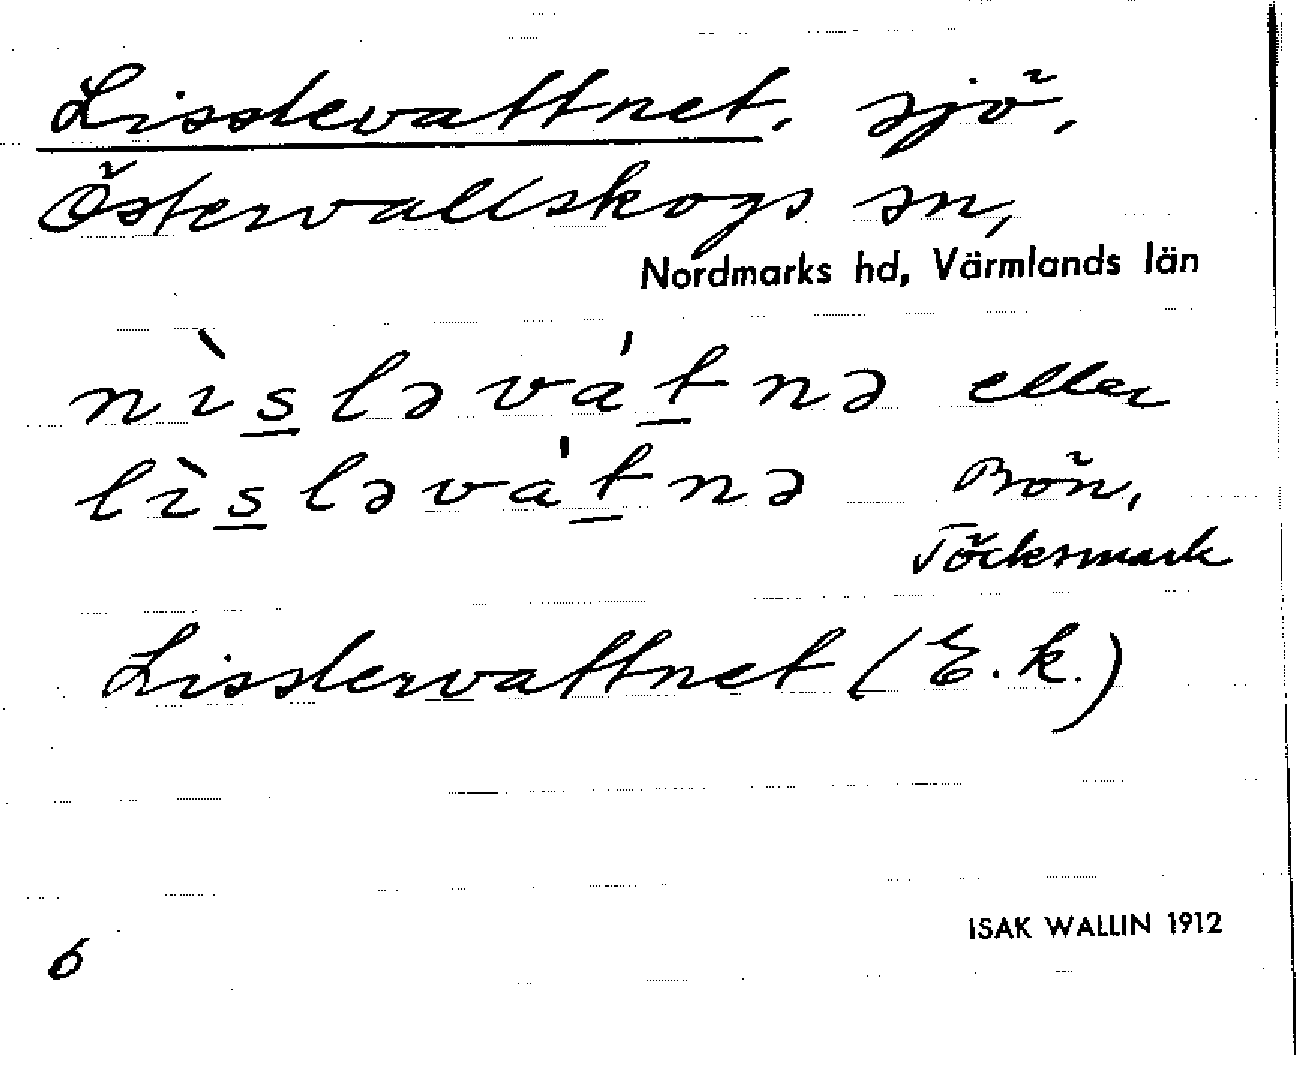 Lisslevattnet, sjö,
Östervallskogs sn,
Nordmarks hd, Värmlands län
nìsləvátnə eller
lìsləvátnə Bön,
Töcksmark
Lisslervattnet (E.k.)
6
ISAK WALLIN 1912